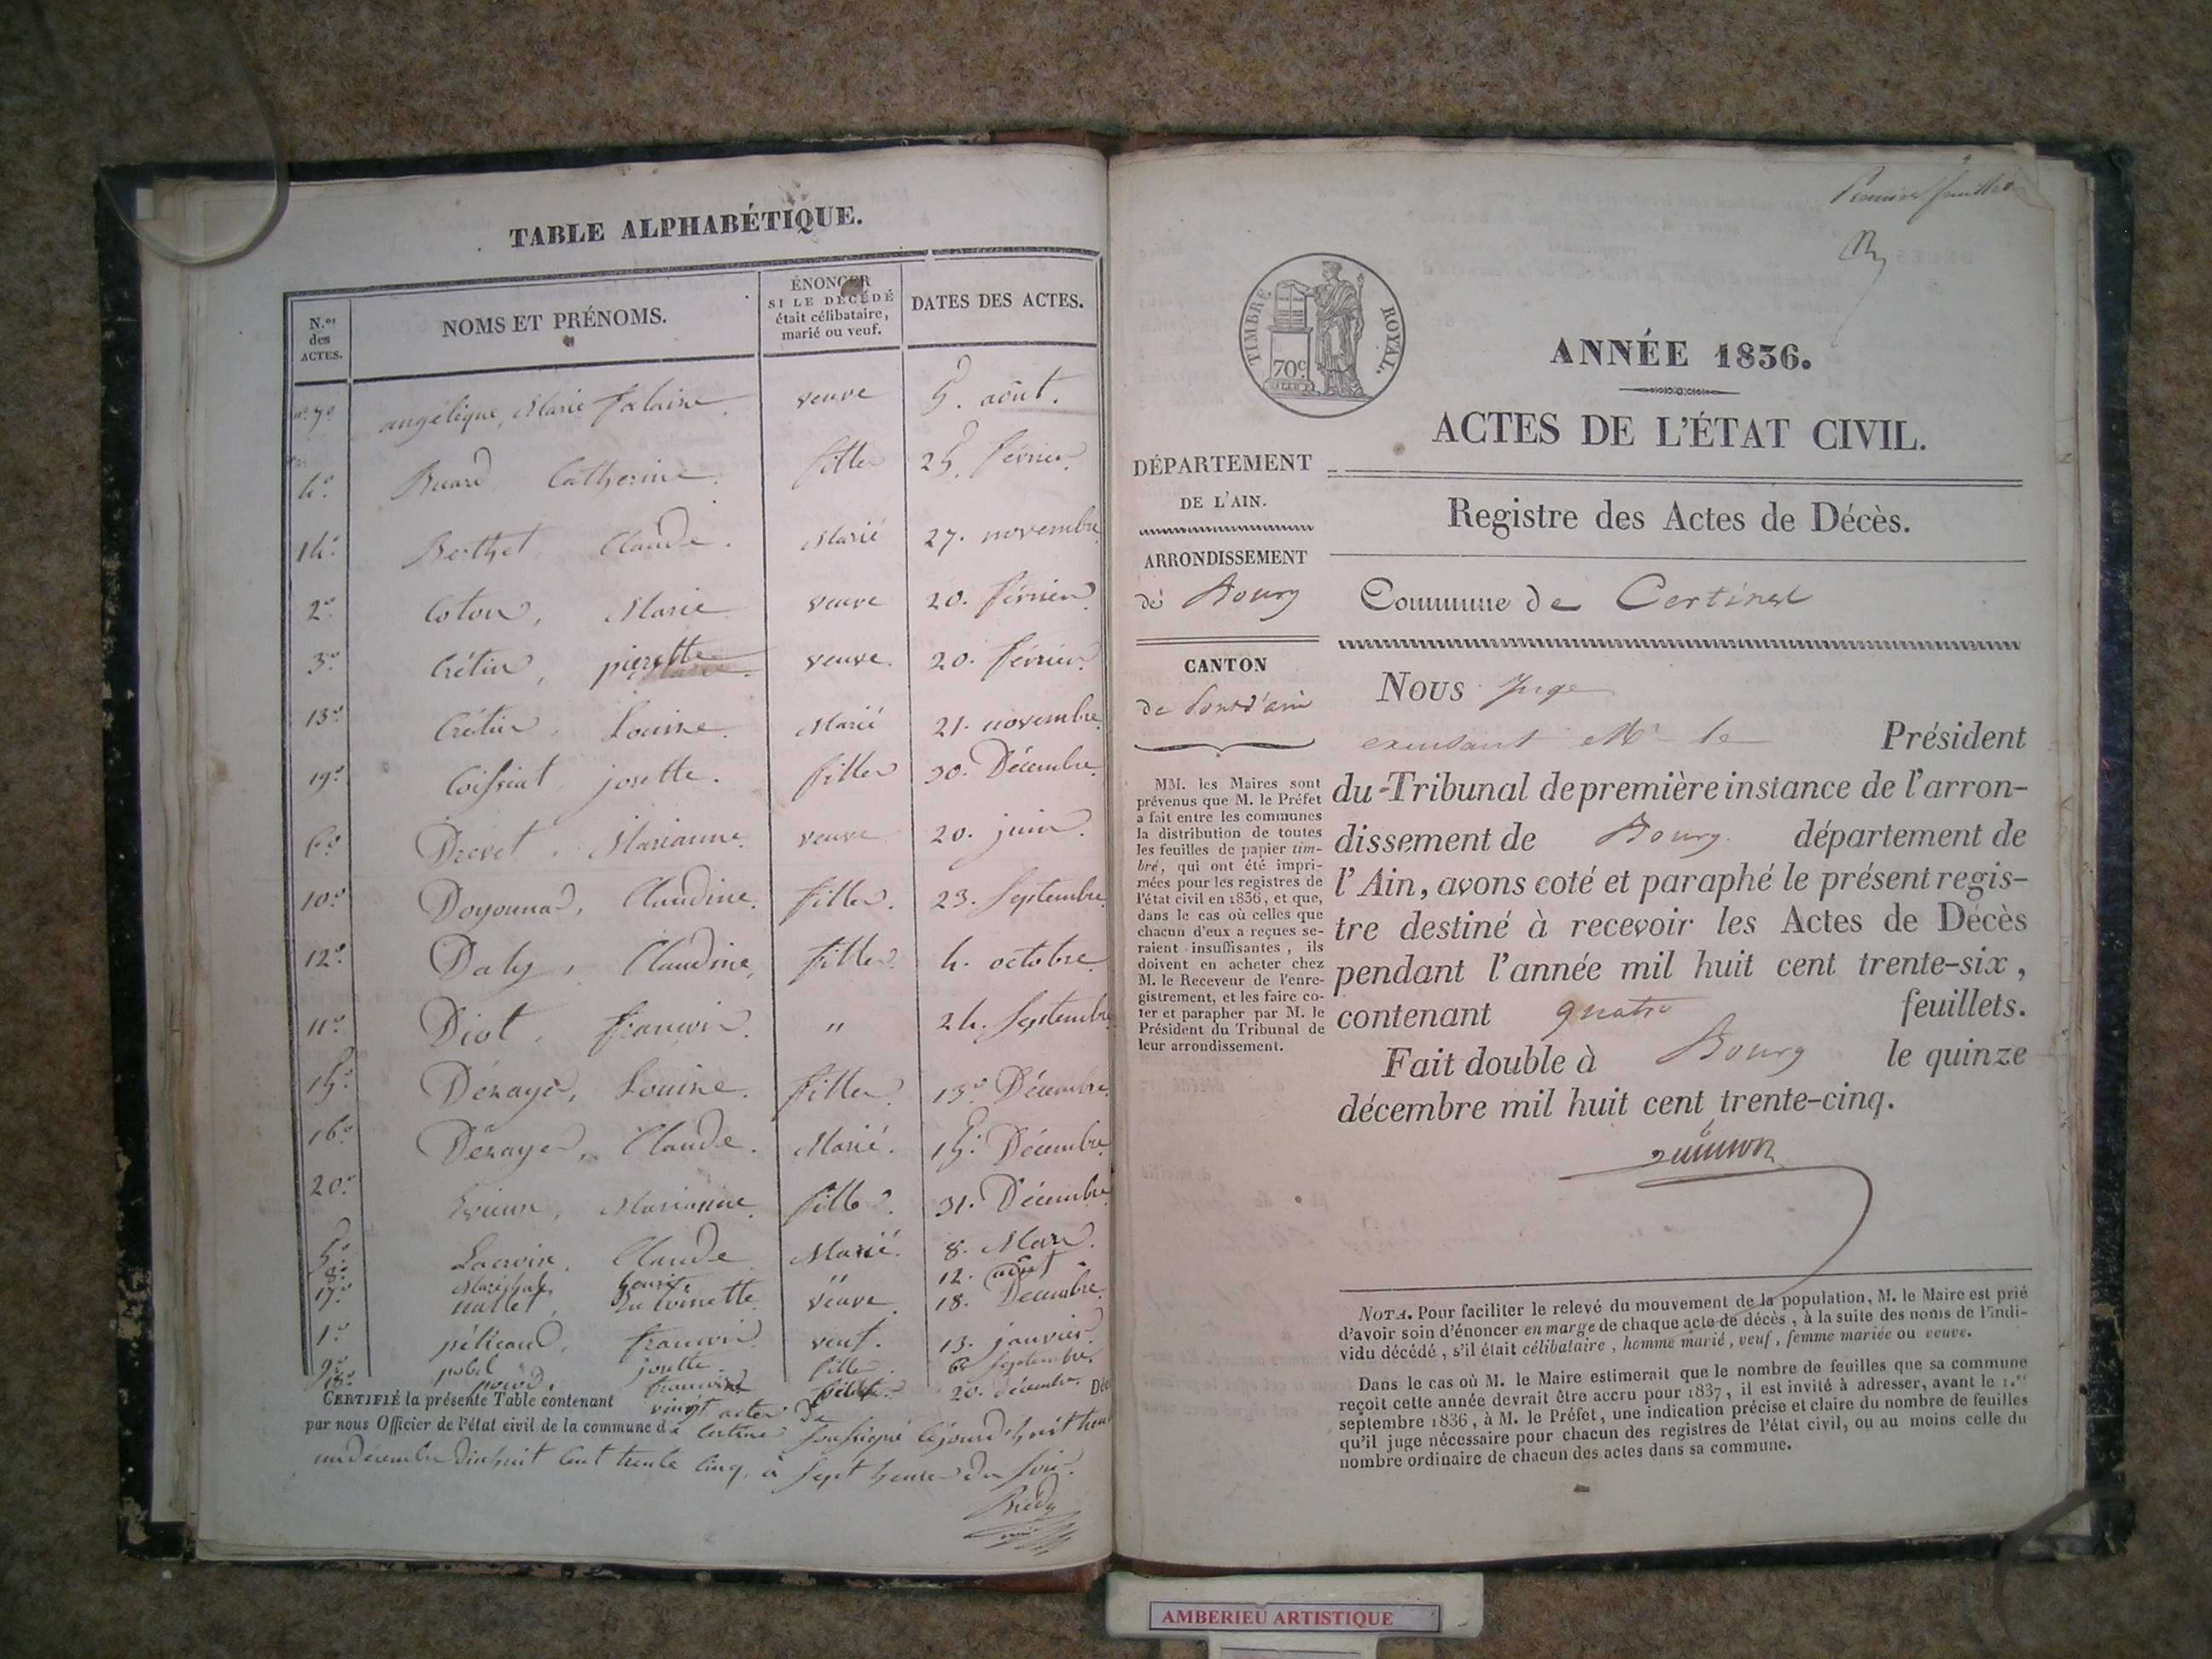 TABLE ALPHABÉTIQUE.
N.os des ACTES.
NOMS ET PRÉNOMS.
ÉNONCER SI LE DÉCÉDÉ était célibataire, marié ou veuf.
DATES DES ACTES.
n.º 7º angélique, Marie veuve 5. août.
4º Catherine fille 25. février.
14º Berthet Claude. Marié 27. novembre
2º Coton, Marie veuve 20. février
3º Crétin, pierrette veuve. 20. février.
13º Crétin, Louise. Marié 21. novembre
19º josette. fille 30. Décembre
6º Drevet, Marianne. veuve 20. juin.
10º Claudine. fille. 23. Septembre
12º Daly, Claudine, fille 4. octobre
11º Diot, françois. " 24. Septembre
15º Louise. fille. 13º Décembre
16º Claude. Marié. 15. Décembre
20º Marianne. fille. 31. Décembre
5º Lacroix, Claude Marié. 8. Mars.
8º Maréchal, " 12. août
17º Antoinette veuve. 18. Décembre.
1º françois veuf. 13. janvier.
9º josette. fille. 6. Septembre.
18º 20. décembre.
CERTIFIÉ la présente Table contenant vingt actes
par nous Officier de l'état civil de la commune de Certines soussigné cejourd'huit trente
un décembre dixhuit cent trente cinq, à sept heures du soir.
Premier feuillet
TIMBRE ROYAL.
70c
ANNÉE 1836.
ACTES DE L'ÉTAT CIVIL.
Registre des Actes de Décès.
DÉPARTEMENT
DE L'AIN.
ARRONDISSEMENT
de Bourg
CANTON
de Pont d'ain
MM. les Maires sont
prévenus que M. le Préfet
a fait entre les communes
la distribution de toutes
les feuilles de papier tim-
bré, qui ont été impri-
mées pour les registres de
l'état civil en 1836, et que,
dans le cas où celles que
chacun d'eux a reçues se-
raient insuffisantes, ils
doivent en acheter chez
M. le Receveur de l'enre-
gistrement, et les faire co-
ter et parapher par M. le
Président du Tribunal de
leur arrondissement.
Commune de Certines
Nous juge
Mr le Président
du Tribunal de première instance de l'arron-
dissement de Bourg département de
l'Ain, avons coté et paraphé le présent regis-
tre destiné à recevoir les Actes de Décès
pendant l'année mil huit cent trente-six,
contenant quatre feuillets.
Fait double à Bourg le quinze
décembre mil huit cent trente-cinq.
NOTA. Pour faciliter le relevé du mouvement de la population, M. le Maire est prié
d'avoir soin d'énoncer en marge de chaque acte de décès, à la suite des noms de l'indi-
vidu décédé, s'il était célibataire, homme marié, veuf, femme mariée ou veuve.
Dans le cas où M. le Maire estimerait que le nombre de feuilles que sa commune
reçoit cette année devrait être accru pour 1837, il est invité à adresser, avant le 1.er
septembre 1836, à M. le Préfet, une indication précise et claire du nombre de feuilles
qu'il juge nécessaire pour chacun des registres de l'état civil, ou au moins celle du
nombre ordinaire de chacun des actes dans sa commune.
AMBERIEU ARTISTIQUE